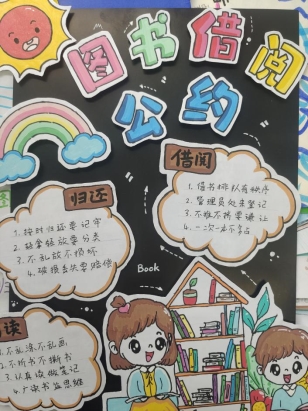 图书借阅
公约
借阅
1. 借书排队有秩序
2. 管理员处先登记
3. 不推不挤要谦让
4. 一次一本不多占
归还
1. 按时归还要记牢
2. 轻拿轻放要分类
3. 不乱放不损坏
4. 破损丢失要赔偿
Book
读
1. 不乱涂不乱画
2. 不折书不撕书
3. 认真读做笔记
4. 广读书